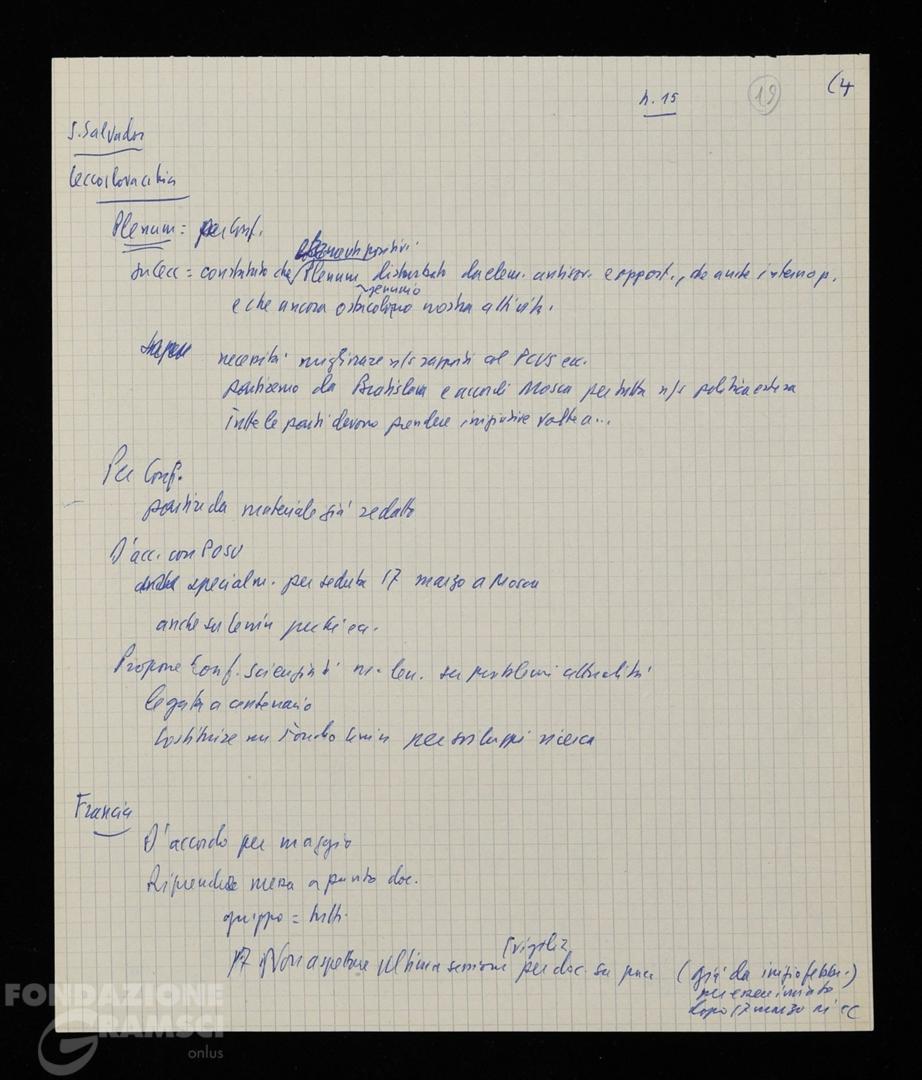 (4
h. 15 19
S. Salvador
Cecoslovacchia
Plenum = per Conf.
elementi positivi.
su Cecc = constatato che Plenum disturbato da elem. antisoc. e opport., da anche internaz.
e che ancora ostacolano nostra attività.
necessità migliorare n/s rapporti col PCUS ecc.
partiremo da Bratislava e accordi Mosca per tutta n/s politica estera
Tutte le parti devono prendere iniziative volte a...
Per Conf.
partire da materiale già redatto
D'acc. con POSU
specialm. per seduta 17 marzo a Mosca
anche su Lenin
Propone Conf. scientifi m-len. su problemi attualità
legata a centenario
Costituire un Fondo Lenin per sviluppi ricerca
Francia
D'accordo per maggio
Riprendere messa a punto doc.
gruppo = tutti.
vigilia
Non aspettare ultima sessione per doc. su pace (già da inizio febbr.)
per essere inviato
dopo 17 marzo ai CC
FONDAZIONE
GRAMSCI
onlus